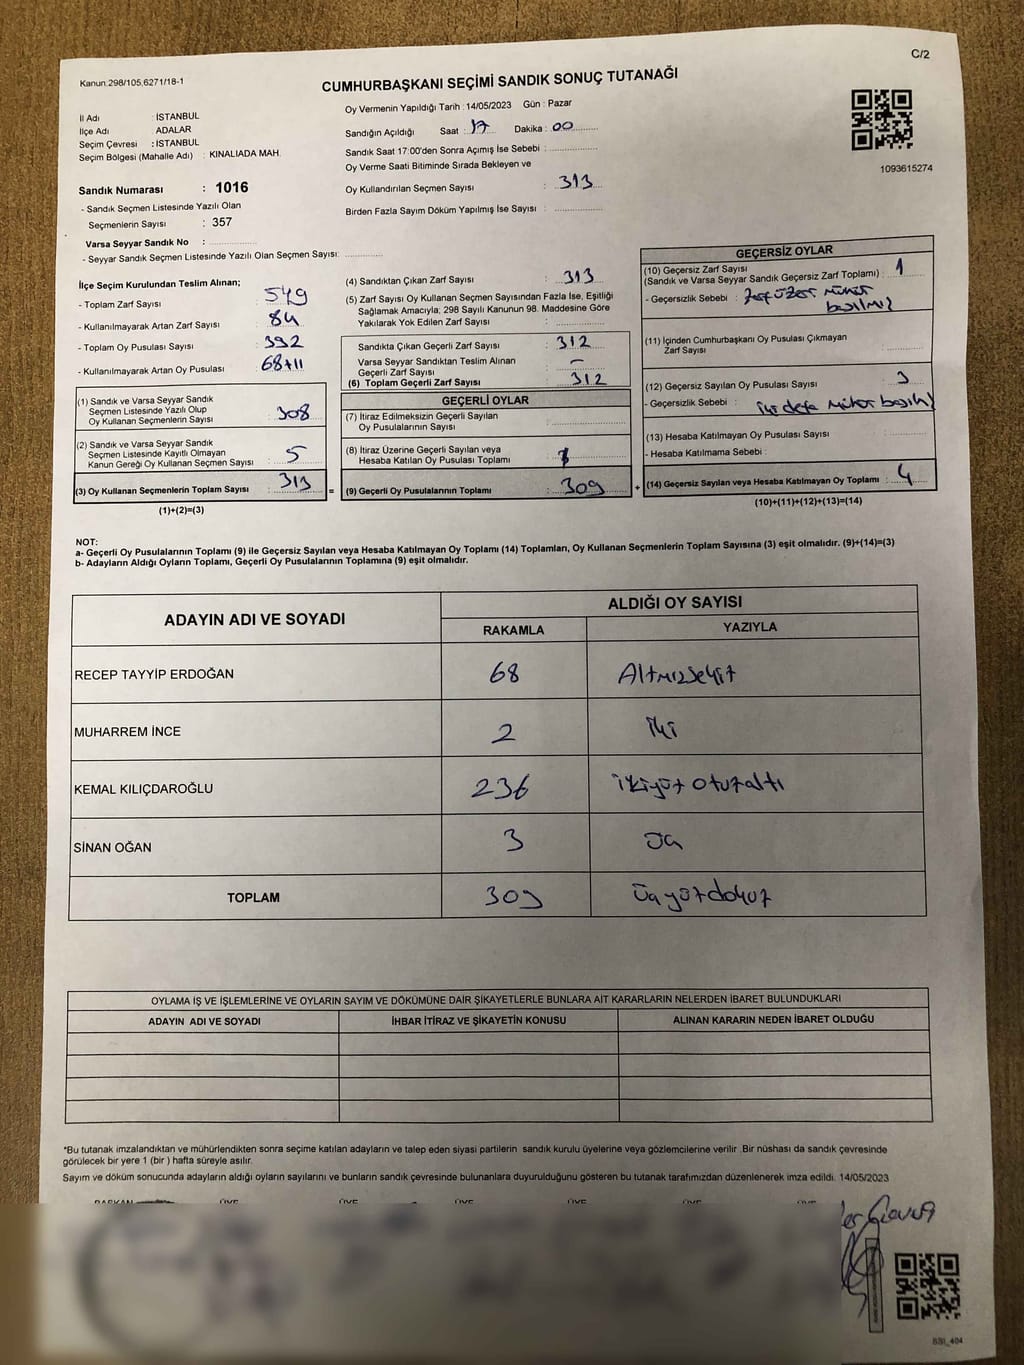 C/2
Kanun.298/105.6271/18-1
CUMHURBAŞKANI SEÇİMİ SANDIK SONUÇ TUTANAĞI
İl Adı : İSTANBUL
İlçe Adı ADALAR
Seçim Çevresi : İSTANBUL
Seçim Bölgesi (Mahalle Adı) : KINALIADA MAH.
Sandık Numarası : 1016
- Sandık Seçmen Listesinde Yazılı Olan
Seçmenlerin Sayısı : 357
Varsa Seyyar Sandık No :
- Seyyar Sandık Seçmen Listesinde Yazılı Olan Seçmen Sayısı:
Oy Vermenin Yapıldığı Tarih : 14/05/2023 Gün : Pazar
Sandığın Açıldığı Saat : 17 Dakika : 00
Sandık Saat 17:00'den Sonra Açımış İse Sebebi :
Oy Verme Saati Bitiminde Sırada Bekleyen ve
Oy Kullandırılan Seçmen Sayısı : 313
Birden Fazla Sayım Döküm Yapılmış İse Sayısı :
1093615274
İlçe Seçim Kurulundan Teslim Alınan;
- Toplam Zarf Sayısı : 549
- Kullanılmayarak Artan Zarf Sayısı : 84
- Toplam Oy Pusulası Sayısı : 392
- Kullanılmayarak Artan Oy Pusulası : 68+11
(1) Sandık ve Varsa Seyyar Sandık
Seçmen Listesinde Yazılı Olup
Oy Kullanan Seçmenlerin Sayısı : 308
(2) Sandık ve Varsa Seyyar Sandık
Seçmen Listesinde Kayıtlı Olmayan
Kanun Gereği Oy Kullanan Seçmen Sayısı : 5
(3) Oy Kullanan Seçmenlerin Toplam Sayısı : 313
(1)+(2)=(3)
(4) Sandıktan Çıkan Zarf Sayısı : 313
(5) Zarf Sayısı Oy Kullanan Seçmen Sayısından Fazla İse, Eşitliği
Sağlamak Amacıyla; 298 Sayılı Kanunun 98. Maddesine Göre
Yakılarak Yok Edilen Zarf Sayısı :
Sandıkta Çıkan Geçerli Zarf Sayısı : 312
Varsa Seyyar Sandıktan Teslim Alınan
Geçerli Zarf Sayısı : -
(6) Toplam Geçerli Zarf Sayısı : 312
GEÇERLİ OYLAR
(7) İtiraz Edilmeksizin Geçerli Sayılan
Oy Pusulalarının Sayısı :
(8) İtiraz Üzerine Geçerli Sayılan veya
Hesaba Katılan Oy Pusulası Toplamı :
= (9) Geçerli Oy Pusulalarının Toplamı : 309
GEÇERSİZ OYLAR
(10) Geçersiz Zarf Sayısı
(Sandık ve Varsa Seyyar Sandık Geçersiz Zarf Toplamı) : 1
- Geçersizlik Sebebi : Zarf üzer mühür
basılmış
(11) İçinden Cumhurbaşkanı Oy Pusulası Çıkmayan
Zarf Sayısı :
(12) Geçersiz Sayılan Oy Pusulası Sayısı : 3
- Geçersizlik Sebebi : iki defa mühür basılış
(13) Hesaba Katılmayan Oy Pusulası Sayısı :
- Hesaba Katılmama Sebebi :
+ (14) Geçersiz Sayılan veya Hesaba Katılmayan Oy Toplamı : 4
(10)+(11)+(12)+(13)=(14)
NOT:
a- Geçerli Oy Pusulalarının Toplamı (9) ile Geçersiz Sayılan veya Hesaba Katılmayan Oy Toplamı (14) Toplamları, Oy Kullanan Seçmenlerin Toplam Sayısına (3) eşit olmalıdır. (9)+(14)=(3)
b- Adayların Aldığı Oyların Toplamı, Geçerli Oy Pusulalarının Toplamına (9) eşit olmalıdır.
ADAYIN ADI VE SOYADI ALDIĞI OY SAYISI
RAKAMLA YAZIYLA
RECEP TAYYİP ERDOĞAN 68 Altmışsekit
MUHARREM İNCE 2 iki
KEMAL KILIÇDAROĞLU 236 ikiyüz otuzaltı
SİNAN OĞAN 3 üç
TOPLAM 309 üçyüzdokuz
OYLAMA İŞ VE İŞLEMLERİNE VE OYLARIN SAYIM VE DÖKÜMÜNE DAİR ŞİKAYETLERLE BUNLARA AİT KARARLARIN NELERDEN İBARET BULUNDUKLARI
ADAYIN ADI VE SOYADI İHBAR İTİRAZ VE ŞİKAYETİN KONUSU ALINAN KARARIN NEDEN İBARET OLDUĞU
*Bu tutanak imzalandıktan ve mühürlendikten sonra seçime katılan adayların ve talep eden siyasi partilerin sandık kurulu üyelerine veya gözlemcilerine verilir .Bir nüshası da sandık çevresinde
görülecek bir yere 1 (bir ) hafta süreyle asılır.
Sayım ve döküm sonucunda adayların aldığı oyların sayılarını ve bunların sandık çevresinde bulunanlara duyurulduğunu gösteren bu tutanak tarafımızdan düzenlenerek imza edildi. 14/05/2023
BAŞKAN ÜYE ÜYE ÜYE ÜYE ÜYE